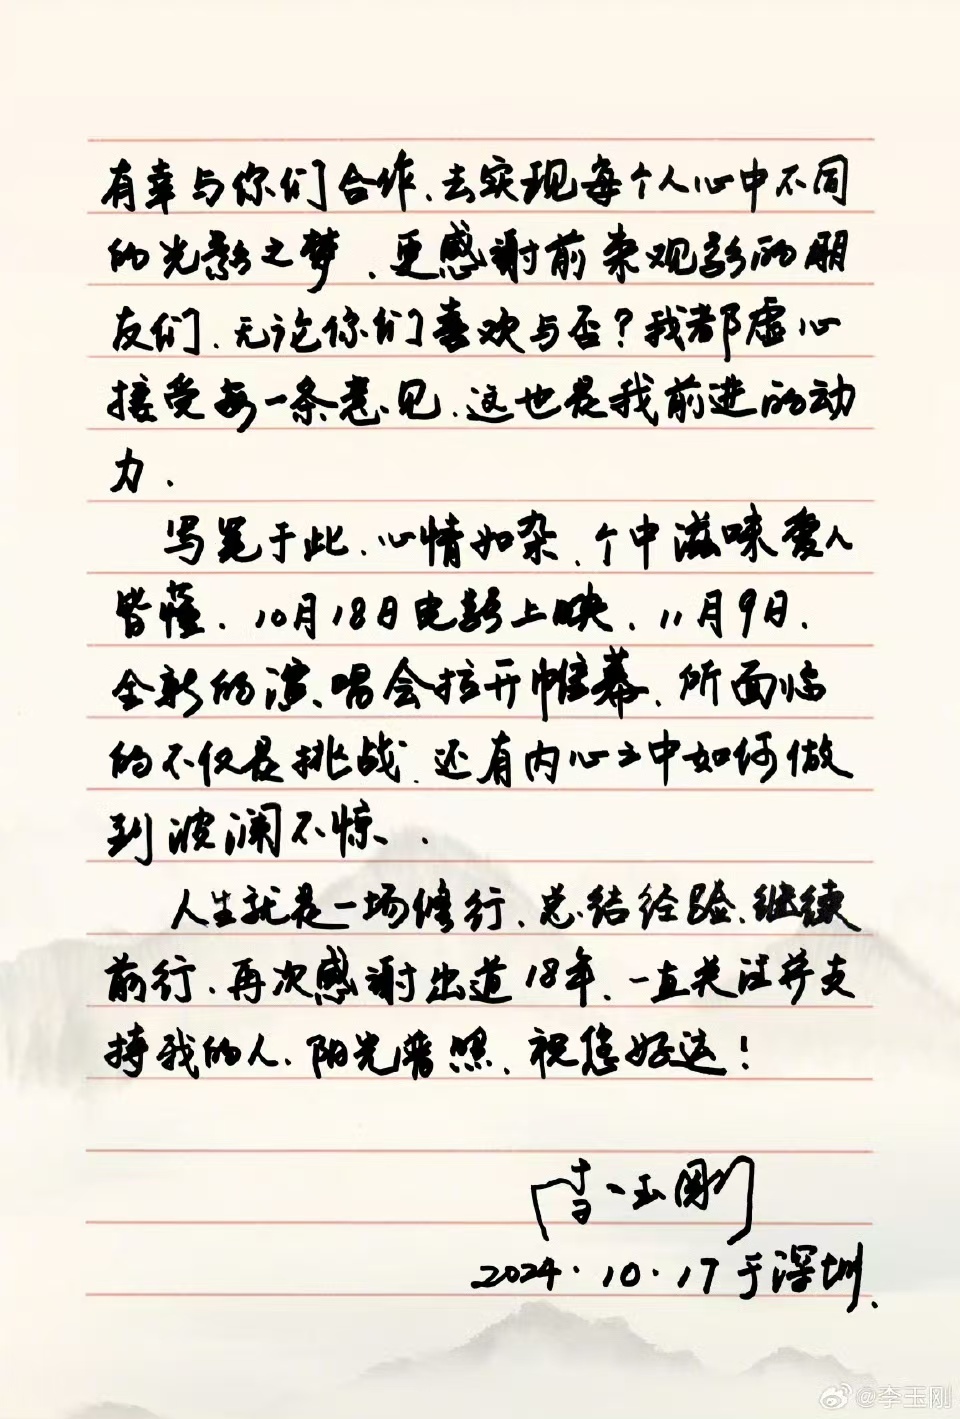 有幸与你们合作、去实现每个人心中不同
的光影之梦、更感谢前来观影的朋
友们、无论你们喜欢与否？我都虚心
接受每一条意见、这也是我前进的动
力.
写笔于此、心情如杂、个中滋味爱人
皆懂、10月18日电影上映、11月9日、
全新的演唱会拉开帷幕、所面临
的不仅是挑战、还有内心之中如何做
到波澜不惊、.
人生就是一场修行、总结经验、继续
前行、再次感谢出道18年、一直关注并支
持我的人、阳光普照、祝您好运！
李玉刚
2024.10.17于深圳、
@李玉刚